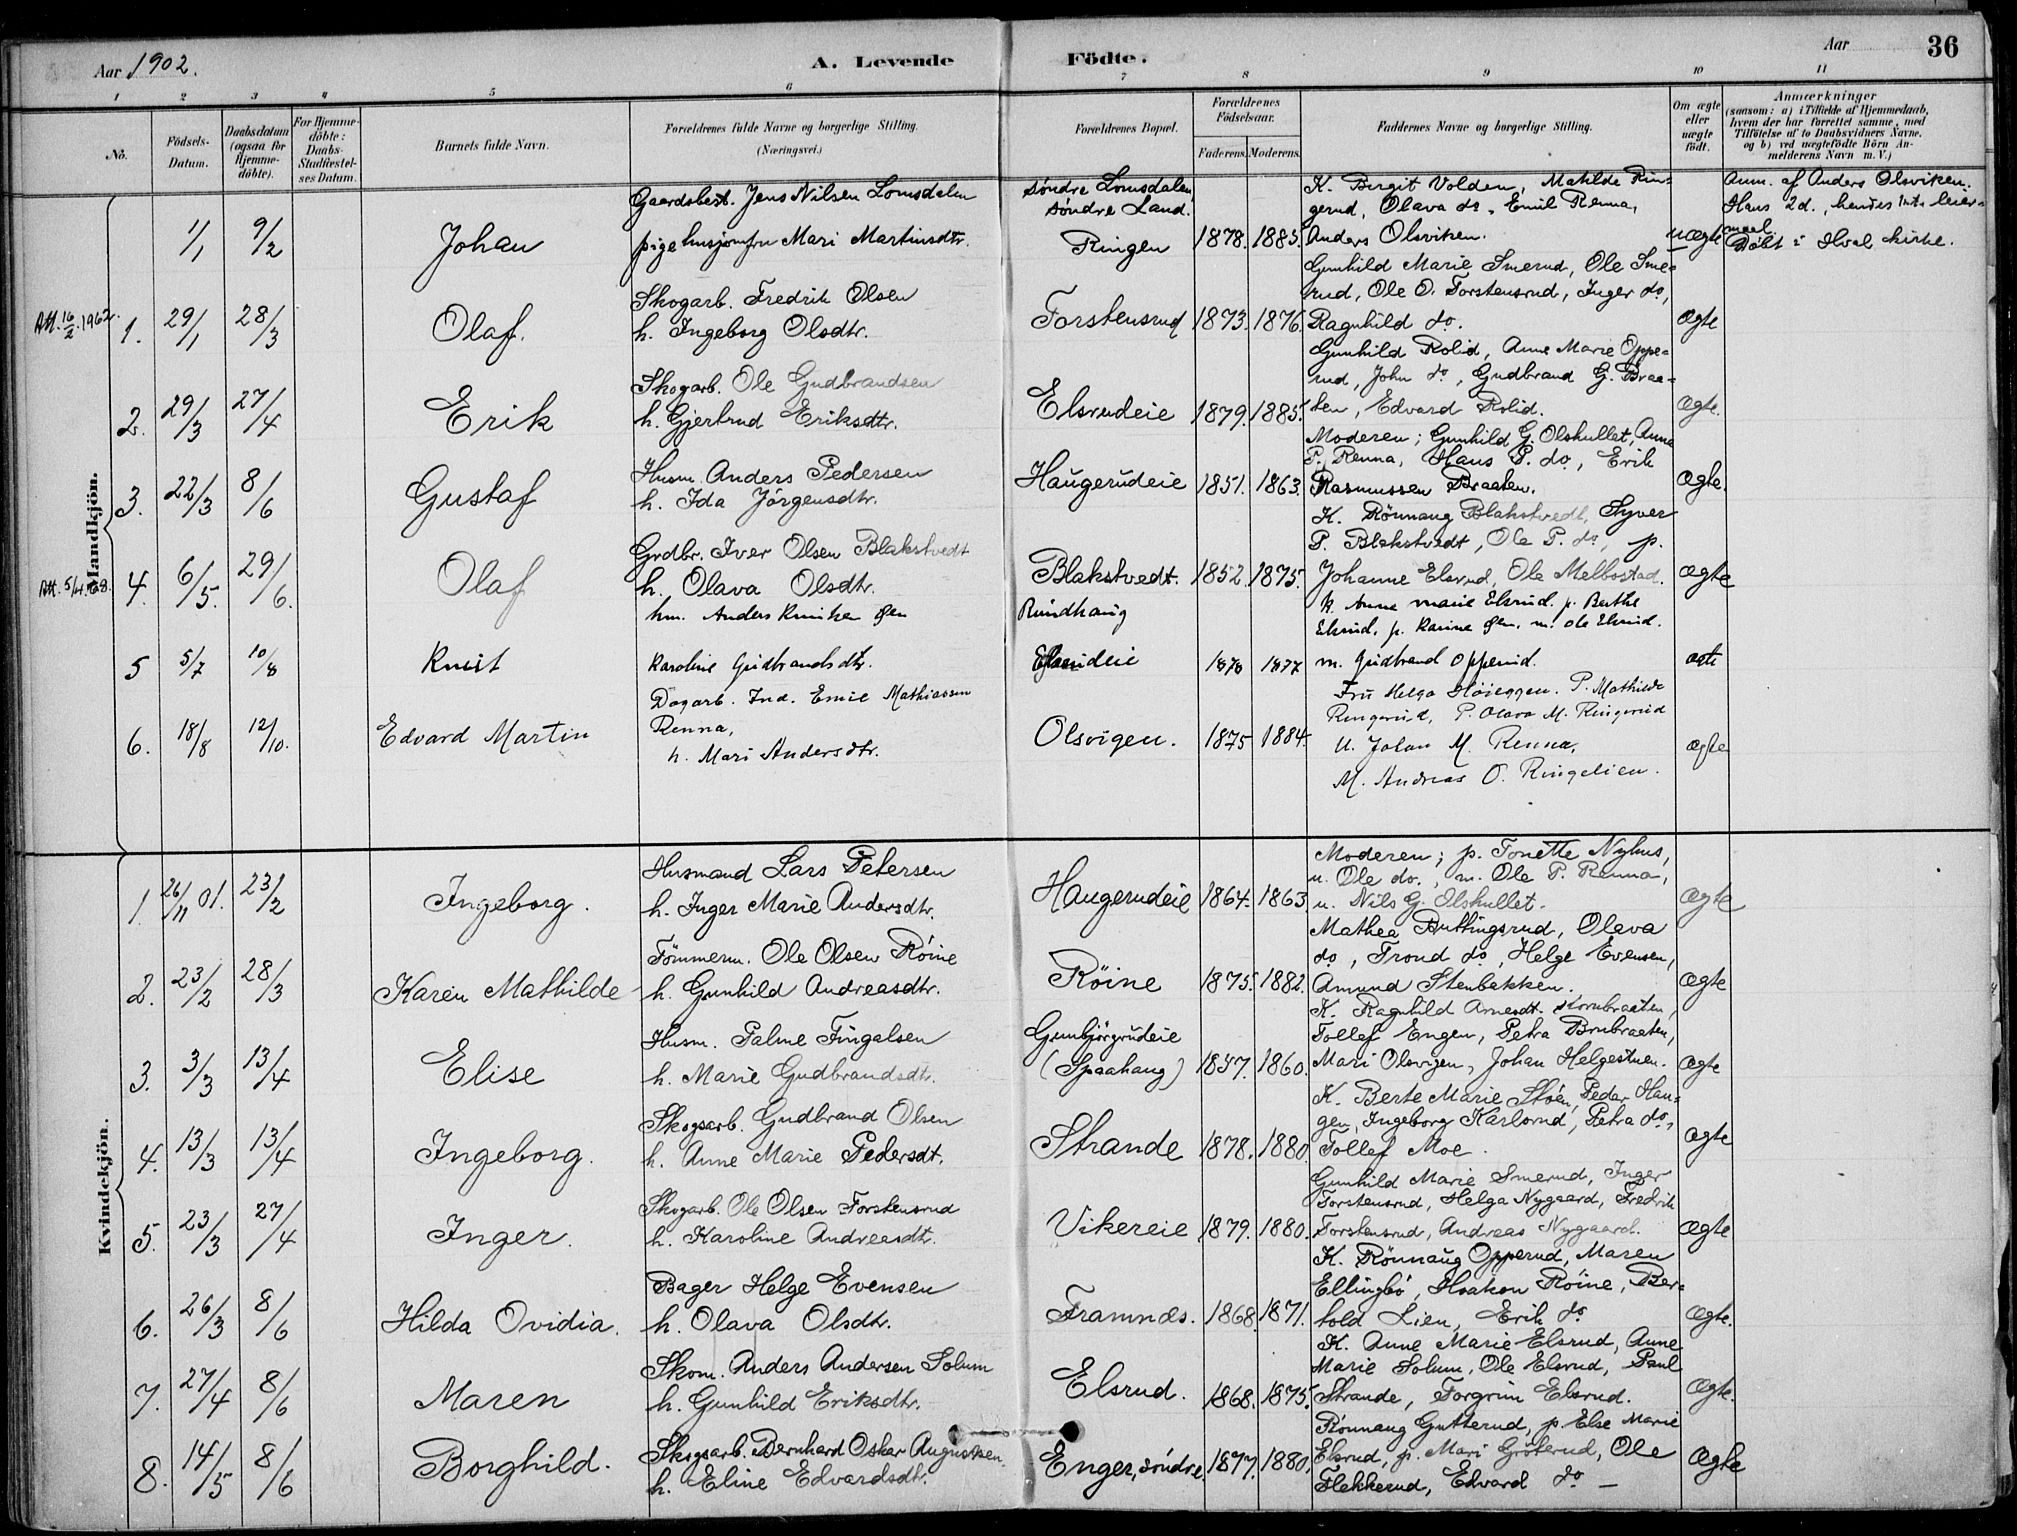 Aar 1902.
A. Levende Födte.
Aar
36
1 2 3 4 5 6 7 8 9 10 11
No.
Födsels-Datum.
Daabsdatum (ogsaa for Hjemme-döbte).
For Hjemme-döbte: Daabs-Stadfæstel-ses Datum.
Barnets fulde Navn.
Forældrenes fulde Navne og borgerlige Stilling.
(Næringsvei.)
Forældrenes Bopæl.
Forældrenes Födselsaar.
Faderens. Moderens.
Faddernes Navne og borgerlige Stilling.
Om ægte eller uægte födt.
Anmærkninger
(saasom: a) i Tilfælde af Hjemmedaab,
hvem der har forrettet samme, med
Tilföielse af to Daabsvidners Navne,
og b) ved uægtefödte Börn An-
melderens Navn m. V.)
Mandkjön.
Gaardsbest. Jens Nilsen Lomsdalen
Söndre Lomsdalen
K. Birgit Volden, Matilde Rin-
Anm. af Anders Olsviken.
Söndre Land.
gerud, Olava do, Emil Renna,
Hans 2d., hendes 1ste leier-
1/1 9/2 Johan pige husjomfru Mari Martinsdtr. Ringen 1878. 1885. Anders Olsviken. uægte
maal.
Döbt i Hval kirke.
Gunhild Marie Smerud, Ole Sme-
Skogarb. Fredrik Olsen
rud, Ole O. Forstensrud, Inger do,
Att. 16/2 1962. 1. 29/1 28/3 Olaf. h. Ingeborg Olsdtr. Forstensrud 1873. 1876. Ragnhild do. Ægte
Gunhild Rolid, Anne Marie Oppe-
Skogarb. Ole Gudbrandsen
rud, John do, Gudbrand G. Braa-
2. 29/3 27/4 Erik h. Gjertrud Eriksdtr. Elsrudeie 1879. 1885. ten, Edvard Rolid. Ægte.
Moderen; Gunhild G. Olshullet, Anna
Husm. Anders Pedersen
P. Renna, Hans P. do, Erik
3. 22/3 8/6 Gustaf h. Ida Jörgensdtr. Haugerudeie 1851. 1863. Rasmussen Braaten. Ægte.
K. Rönnaug Blakstvedt, Syver
Grdbr. Iver Olsen Blakstvedt
P. Blakstvedt, Ole P. do, p.
4. 6/5. 29/6. Olaf h. Olava Olsdtr. Blakstvedt. 1852. 1875. Johanne Elsrud, Ole Melbostad. Ægte
hm. Anders Knutsen
Rundhaug
K. Anne Marie Elsrud. p. Berthe
Elsrud, p. Karine m. Ole Elsrud.
5 5/7 10/8 Knut Karoline Gudbrandsdtr. 1877 m. Gudbrand Opperud. ægte
Dagarb. Ind. Emil Mathiassen
Fru Helga Höieggen. P. Mathilde
Renna,
Ringerud, P. Olava M. Ringerud
6. 18/8 12/10. Edvard Martin h. Mari Andersdtr. Olsvigen. 1875 1884. U. Johan M. Renna, ægte
M. Andreas O. Ringelien.
Kvindekjön.
Moderen; p. Tonette Nyhus,
Husmand Lars Petersen
u. Ole do., m. Ole P. Renna,
1. 26/11 01. 23/2 Ingeborg. h. Inger Marie Andersdtr. Haugerudeie 1864. 1863. u. Nils G. Olshullet. Ægte
Mathea Buttingsrud, Olava
Tömmerm. Ole Olsen Röine
do, Trond do, Helge Evensen,
2. 23/2 28/3 Karen Mathilde h. Gunhild Andreasdtr. Röine 1875. 1882. Amund Stenbakken. Ægte
K. Ragnhild Arnesdt. Kornbraaten,
Husm. Palme Fingalsen
Gunbjörgrudeie
Tollef Engen, Petra Brubraaten,
3. 3/3 13/4 Elise h. Marie Gudbrandsdtr. (Spaahaug) 1857. 1860. Mari Olsvigen, Johan Helgestuen. Ægte
K. Berte Marie Sköen, Peder Hau-
Skogsarb. Gudbrand Olsen
gen, Ingeborg Karlsrud, Petra do,
4. 13/3 13/4 Ingeborg. h. Anne Marie Pedersdt. Strande 1878. 1880. Tollef Moe. Ægte
Gunhild Marie Smerud, Inger
Skogarb. Ole Olsen Forstensrud
Forstensrud, Helga Nygaard, Fredrik
5. 23/3 27/4 Inger. h. Karoline Andreasdtr. Vikereie 1879. 1880. Forstensrud, Andreas Nygaard. Ægte
K. Rönnaug Opperud, Maren
Bager Helge Evensen
Ellingbö, Haakon Röine, Ber-
6. 26/3 8/6 Hilda Ovidia. h. Olava Olsdtr. Framnæs. 1868. 1871. told Lien, Erik do Ægte.
K. Anne Marie Elsrud, Anne
Skom. Anders Andersen Solum
Marie Solum, Ole Elsrud, Paul
7. 27/4 8/6 Maren h. Gunhild Eriksdtr. Elsrud. 1868. 1875. Strande, Torgrim Elsrud. Ægte.
Rönnaug Gutterud, p. Else Marie
Skogsarb. Bernhard Oskar Augustsen.
Elsrud, p. Mari Gröterud, Ole
8. 14/5 8/6 Borghild. h. Eline Edvardsdtr. Enger, söndre 1877. 1880. Flekkerud, Edvard do – Ægte